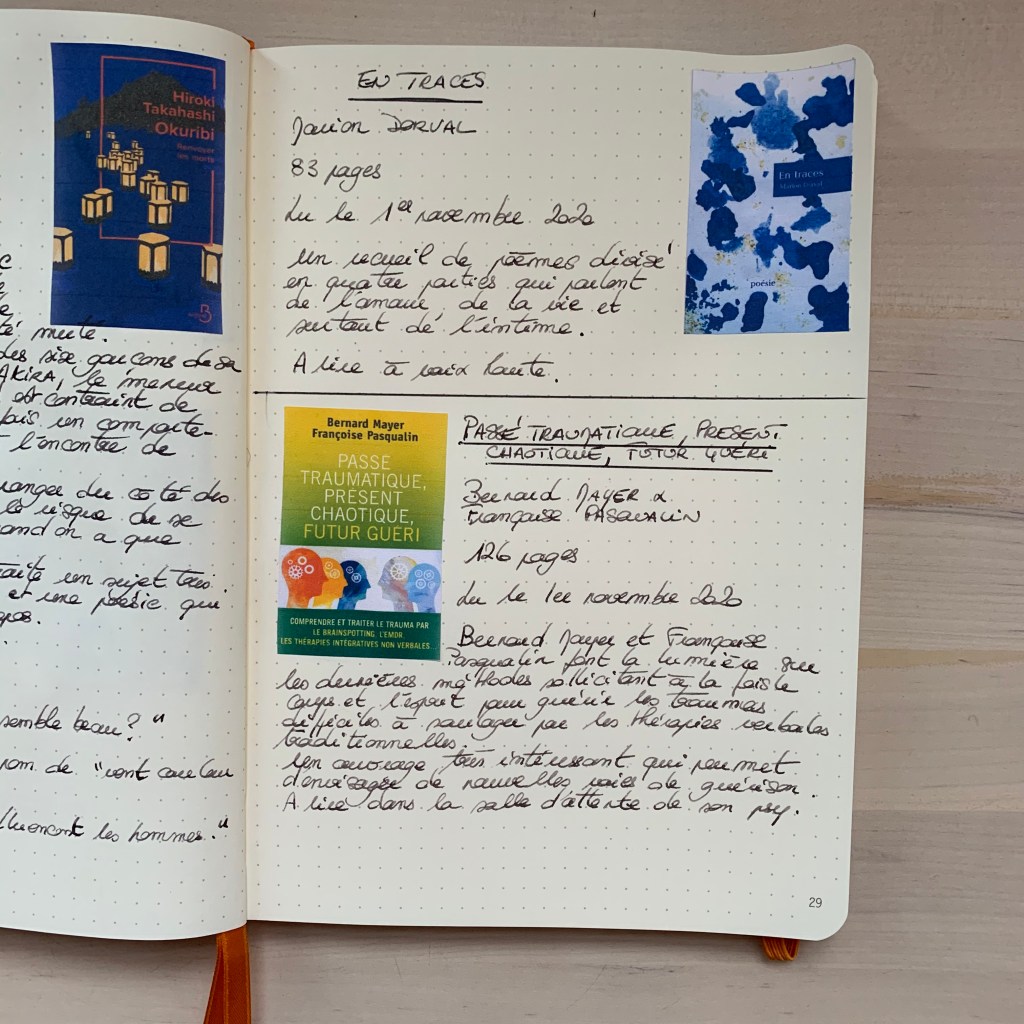 Hiroki
Takahashi
Okuribi
Renvoyer
les morts
B
té muté.
les six garçons de sa
AKIRA, le meneur
est contraint de
puis un comporte-
t l'encontre de
ranger du côté des
le risque de se
and on a que
raite un sujet très
et une poésie qui
pos.
semble beau ? "
nom de "vent couleur
fluencent les hommes."
EN TRACES
Marion DORVAL
83 pages
Lu le 1er novembre 2020
Un recueil de poèmes divisé
en quatre parties qui parlent
de l'amour de la vie et
surtout de l'intime.
A lire à voix haute.
En traces
Marion Dorval
poésie
Bernard Mayer
Françoise Pasqualin
PASSÉ
TRAUMATIQUE,
PRÉSENT
CHAOTIQUE,
FUTUR GUÉRI
COMPRENDRE ET TRAITER LE TRAUMA PAR
LE BRAINSPOTTING, L'EMDR,
LES THÉRAPIES INTÉGRATIVES NON VERBALES...
PASSÉ TRAUMATIQUE, PRESENT
CHAOTIQUE, FUTUR GUÉRI
Bernard MAYER &
Françoise PASQUALIN
126 pages
Lu le 1er novembre 2020
Bernard Mayer et Françoise
Pasqualin font la lumière sur
les dernières méthodes sollicitant à la fois le
corps et l'esprit pour guérir les traumas
difficiles à soulager par les thérapies verbales
traditionnelles.
Un ouvrage très intéressant qui permet
d'envisager de nouvelles voies de guérison.
A lire dans la salle d'attente de son psy.
29